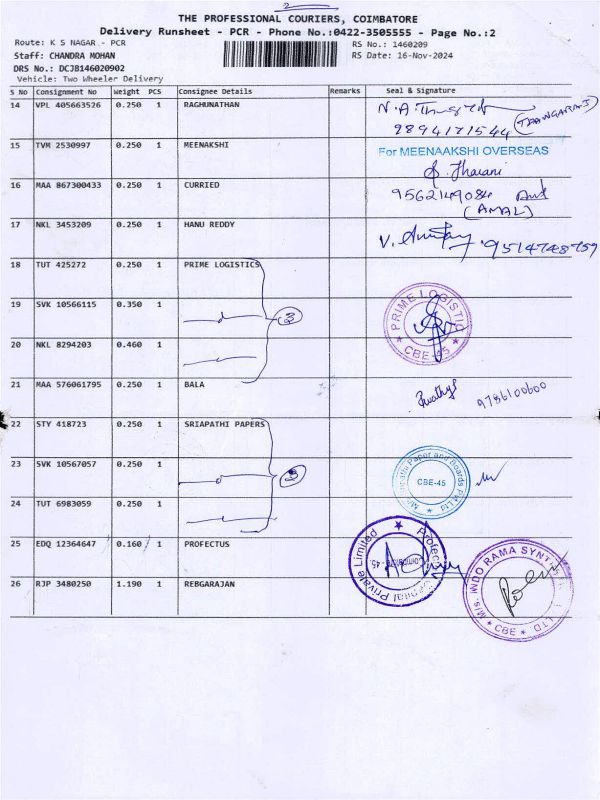 2
THE PROFESSIONAL COURIERS, COIMBATORE
Delivery Runsheet - PCR - Phone No.:0422-3505555 - Page No.:2
Route: K S NAGAR - PCR
RS No.: 1460209
Staff: CHANDRA MOHAN
RS Date: 16-Nov-2024
DRS No.: DCJB146020902
Vehicle: Two Wheeler Delivery
S No Consignment No Weight PCS Consignee Details Remarks Seal & Signature
14 VPL 405663526 0.250 1 RAGHUNATHAN
9894171544
15 TVM 2530997 0.250 1 MEENAKSHI
For MEENAAKSHI OVERSEAS
16 MAA 867300433 0.250 1 CURRIED
9562149084
(AMAL)
17 NKL 3453209 0.250 1 HANU REDDY
9514748759
18 TUT 425272 0.250 1 PRIME LOGISTICS
19 SVK 10566115 0.350 1
PRIME LOGISTIC
CBE-45
20 NKL 8294203 0.460 1
21 MAA 576061795 0.250 1 BALA
9786100600
22 STY 418723 0.250 1 SRIAPATHI PAPERS
23 SVK 10567057 0.250 1
Paper and Boards Pvt Ltd
CBE-45
24 TUT 6983059 0.250 1
25 EDQ 12364647 0.160 1 PROFECTUS
Private Limited
26 RJP 3480250 1.190 1 REBGARAJAN
M/s. INDO RAMA SYNT
LTD.
CBE